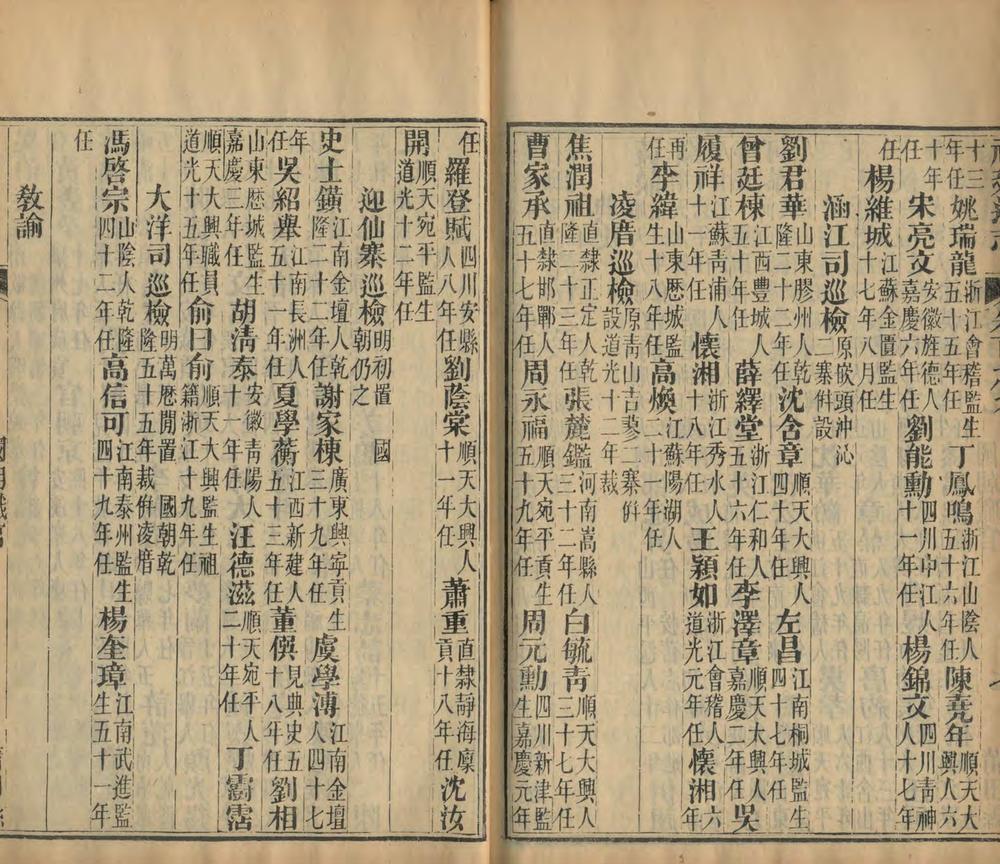 十三年任姚瑞龍浙江會稽監生五十五年任丁鳳鳴浙江山陰人五十六年任陳堯年順天大興人六
十年任宋亮文安徽旌德人嘉慶六年任劉能勳四川中江人十一年任楊錦文四川青神人十七年
任楊維城江蘇金匱監生十七年八月任
涵江司巡檢原嵌頭沖沁二寨倂設
劉君華山東膠州人乾隆二十二年任沈含章順天大興人左昌江南桐城監生四十七年任
曾廷棟江西豐城人五十年任薛繹堂浙江仁和人五十六年任李澤章順天大興人嘉慶二年任吳
履祥江蘇青浦人十一年任懷湘浙江秀水人十八年任王潁如浙江會稽人道光元年任懷湘六年
再任李緯山東歷城監生十八年任高煥江蘇陽湖人二十一年任
凌厝巡檢原青山吉蓼二寨倂設道光十二年裁
焦潤祖直隸正定人乾隆二十三年任張麓鑑河南嵩縣人三十二年任白毓青順天大興人三十七年任
曹家承直隸邯鄲人五十七年任周永福順天宛平貢生五十九年任周元勳四川新津監生嘉慶元年
任羅登賦四川安縣人八年任劉蔭棠順天大興人十一年任蕭重直隸靜海廩貢十八年任沈汝
開順天宛平監生道光十二年任
迎仙寨巡檢明初置國朝仍之
史士鐄江南金壇人乾隆二十二年任謝家棟廣東興寧貢生三十九年任虞學溥江南金壇人四十七
年任吳紹舉江南長洲人五十一年任夏學蘅江西新建人五十三年任董僎見典史五十八年任劉相
山東歷城監生嘉慶三年任胡清泰安徽青陽人十一年任汪德滋順天宛平人二十年任丁霨霑
順天大興職員道光十五年任俞日俞順天大興監生祖籍浙江十九年任
大洋司巡檢明萬曆閒置國朝乾隆五十五年裁倂凌厝
馮啓宗山陰人乾隆四十二年任高信可江南泰州監生四十九年任楊奎璋江南武進監生五十一年
任
教諭